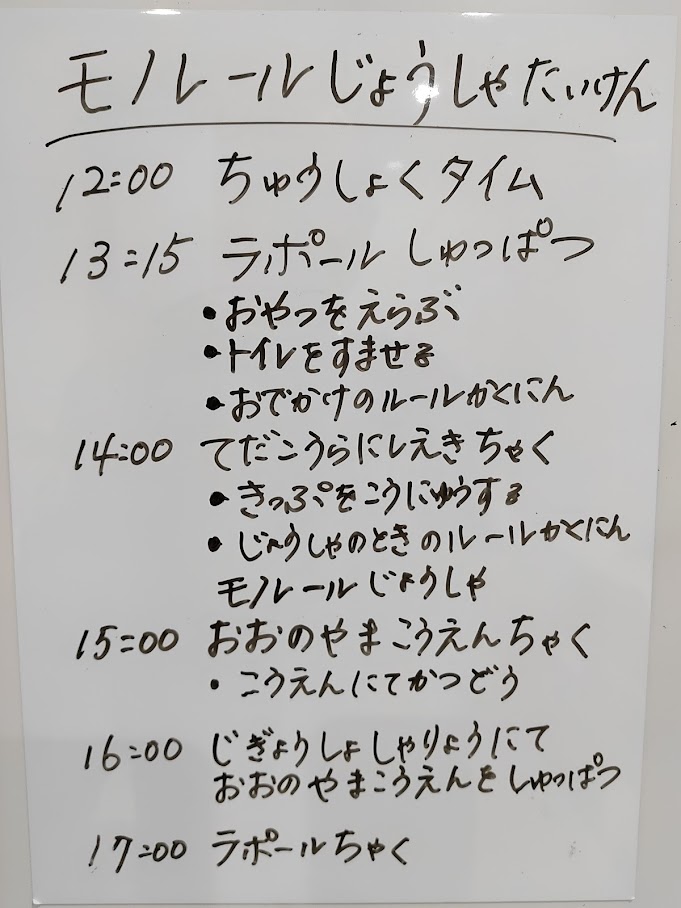 モノレールじょうしゃたいけん
12:00 ちゅうしょくタイム
13:15 ラポールしゅっぱつ
・おやつをえらぶ
・トイレをすませる
・おでかけのルールかくにん
14:00 てだこうらにしえきちゃく
・きっぷをこうにゅうする
・じょうしゃのときのルールかくにん
モノレールじょうしゃ
15:00 おおのやまこうえんちゃく
・こうえんにてかつどう
16:00 じぎょうしょしゃりょうにて
おおのやまこうえんをしゅっぱつ
17:00 ラポールちゃく